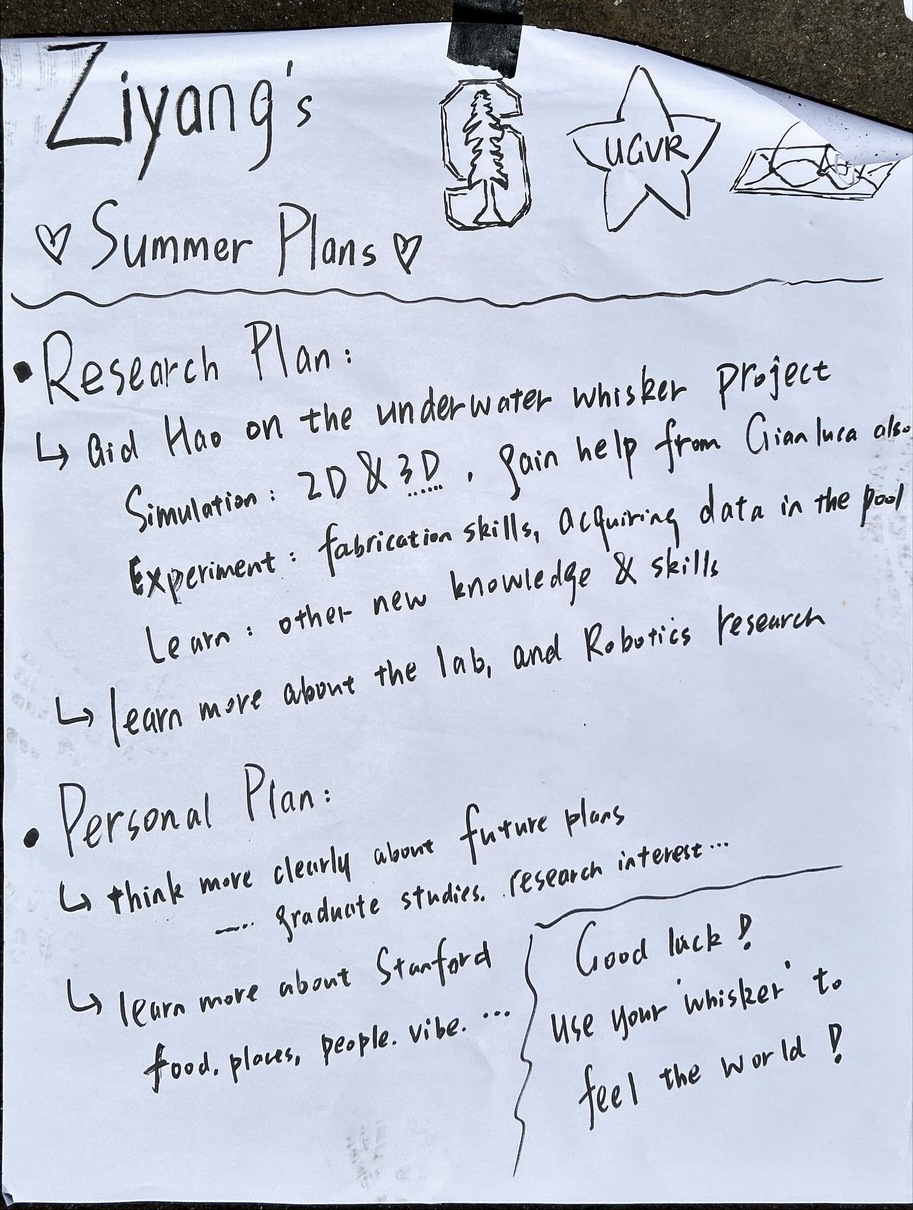 Ziyang's
UGVR
♡ Summer Plans ♡
• Research Plan:
↳ aid Hao on the underwater whisker project
Simulation: 2D & 3D, gain help from Gianluca also
Experiment: fabrication skills, acquiring data in the pool
Learn: other new knowledge & skills
↳ learn more about the lab, and Robotics research
• Personal Plan:
↳ think more clearly about future plans
—... graduate studies. research interest...
↳ learn more about Stanford
food. places, people. vibe. ...
Good luck!
use your 'whisker' to
feel the world!